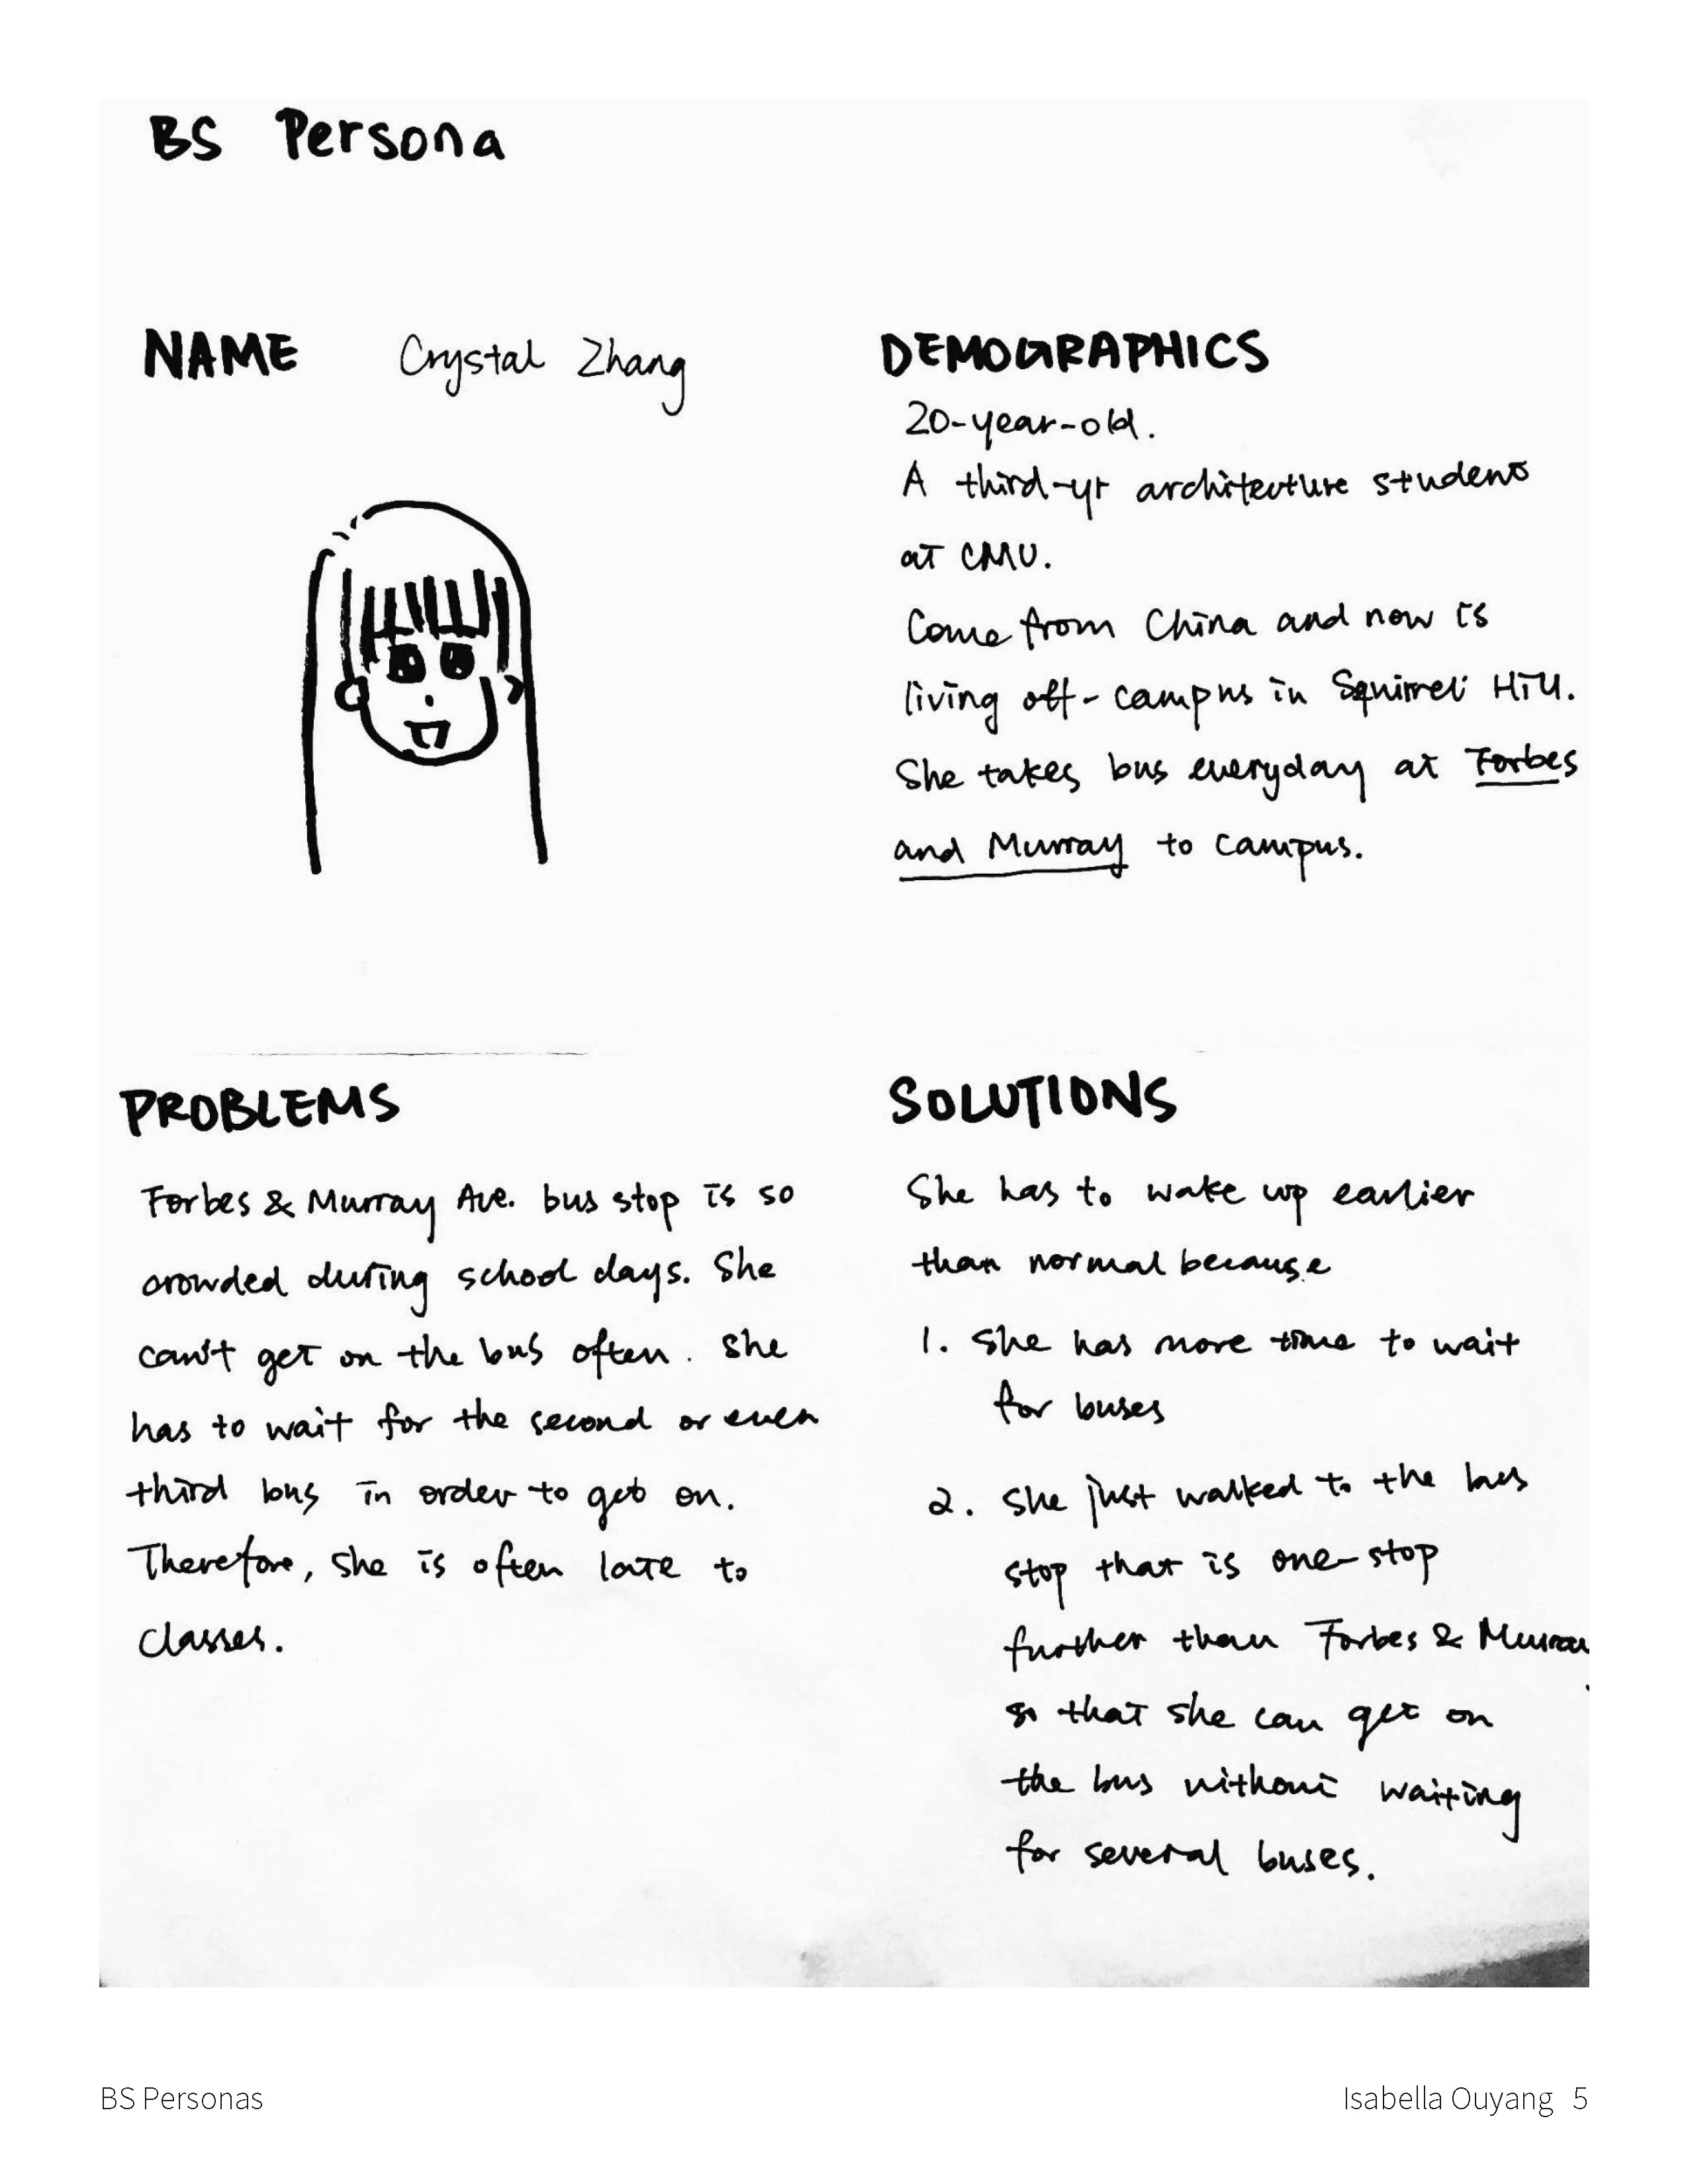 BS Persona
NAME Crystal Zhang
DEMOGRAPHICS
20-year-old.
A third-yr architecture student
at CMU.
Come from China and now is
living off-campus in Squirrel Hill.
She takes bus everyday at Forbes
and Murray to campus.
PROBLEMS
Forbes & Murray Ave. bus stop is so
crowded during school days. She
can't get on the bus often. She
has to wait for the second or even
third bus in order to get on.
Therefore, she is often late to
classes.
SOLUTIONS
She has to wake up earlier
than normal because
1. she has more time to wait
for buses
2. she just walked to the bus
stop that is one-stop
further than Forbes & Murray
so that she can get on
the bus without waiting
for several buses.
BS Personas
Isabella Ouyang 5